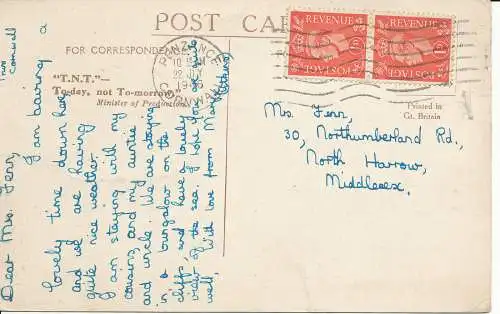 POST CARD
FOR CORRESPONDENCE
"T.N.T."—
To-day, not To-morrow
Minister of Production
PENZANCE
CORNWALL
REVENUE
REVENUE
POSTAGE
POSTAGE
Printed in
Gt. Britain
Mrs. Fenn,
30, Northumberland Rd.,
North Harrow,
Middlesex.
Dear Mrs. Fenn,
I am having a
lovely time down here
and we are having
quite nice weather.
I am staying with my
cousins, and my auntie
and uncle. We are staying
in a bungalow on the
cliffs, and have a lovely
view of the sea. I hope you're
well,
With love from Mary